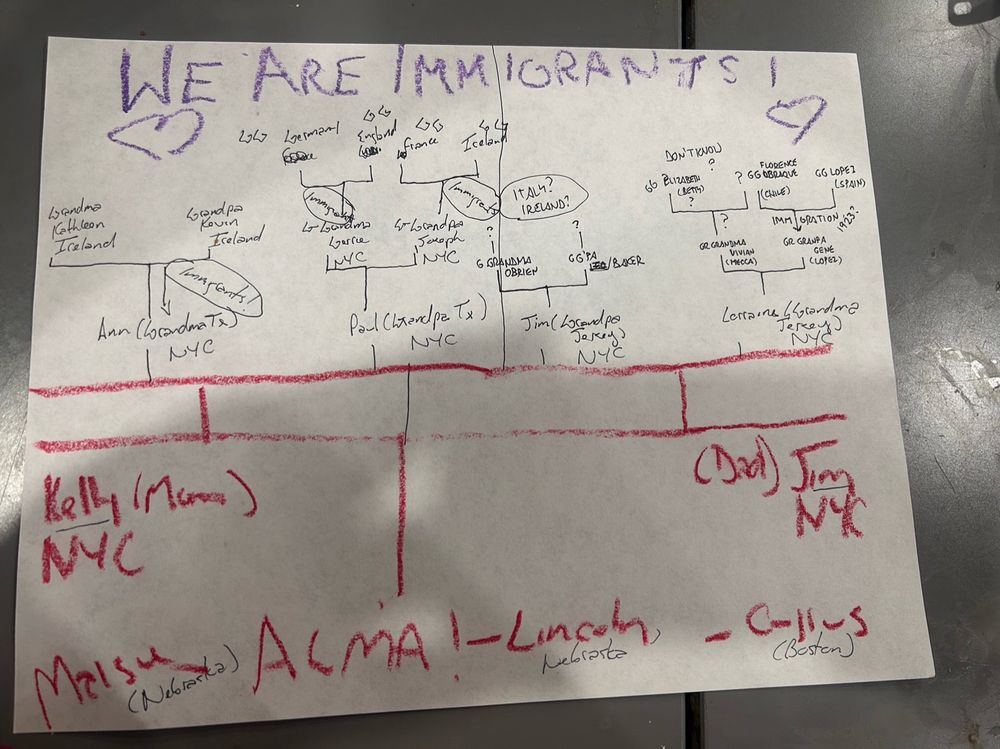 WE ARE IMMIGRANTS!
GG
Germany
GG
England
GG
France
GG
Ireland
DON'T KNOW
?
GG ELIZABETH
(BETH)
?
?
FLORENCE
GG OBRAQUE
(CHILE)
GG LOPEZ
(SPAIN)
IMMIGRATION
1923?
Grandma
Kathleen
Ireland
Grandpa
Kevin
Ireland
Immigrants!
Immigrants
Immigrants
ITALY?
IRELAND?
G-Grandma
NYC
G-Grandpa
Joseph
NYC
?
G GRANDMA
OBRIEN
?
GG'PA
/BAKER
?
GR GRANDMA
VIVIAN
(MECCA)
GR GRANPA
GENE
(LOPEZ)
Ann (Grandma Tx)
NYC
Paul (Grandpa Tx)
NYC
Jim (Grandpa
Jersey)
NYC
Lorraine (Grandma
Jersey)
NYC
Kelly (Mom)
NYC
(Dad) Jim
NYC
(Nebraska)
! - Lincoln
Nebraska
-
(Boston)